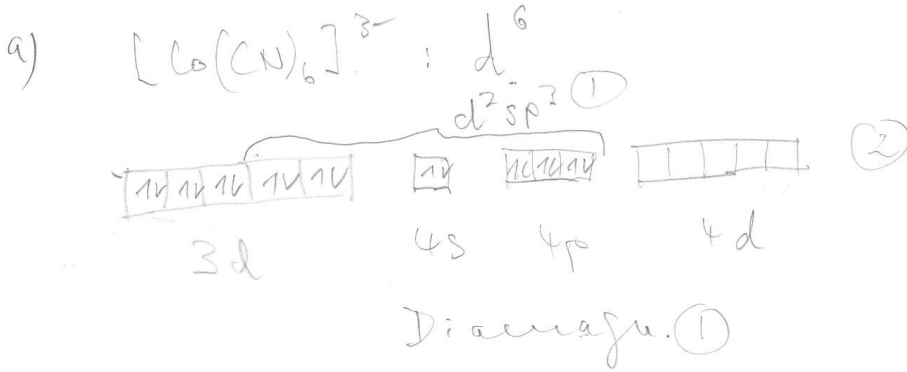 a) [Co(CN)₆]³⁻ : d⁶
d²sp³ ①
1V 1V 1V 1V 1V 1V 1V 1V 1V ②
3d 4s 4p 4d
Diamagn. ①